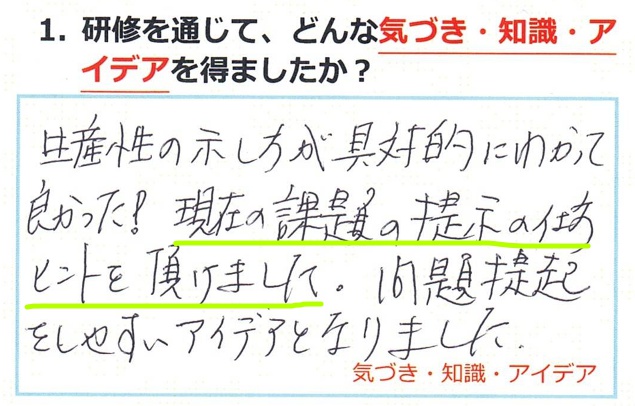 1. 研修を通じて、どんな気づき・知識・ア
イデアを得ましたか？
生産性の示し方が具体的にわかって
良かった! 現在の課題の提示の仕方
ヒントを頂けました。問題提起
をしやすいアイデアとなりました.
気づき・知識・アイデア